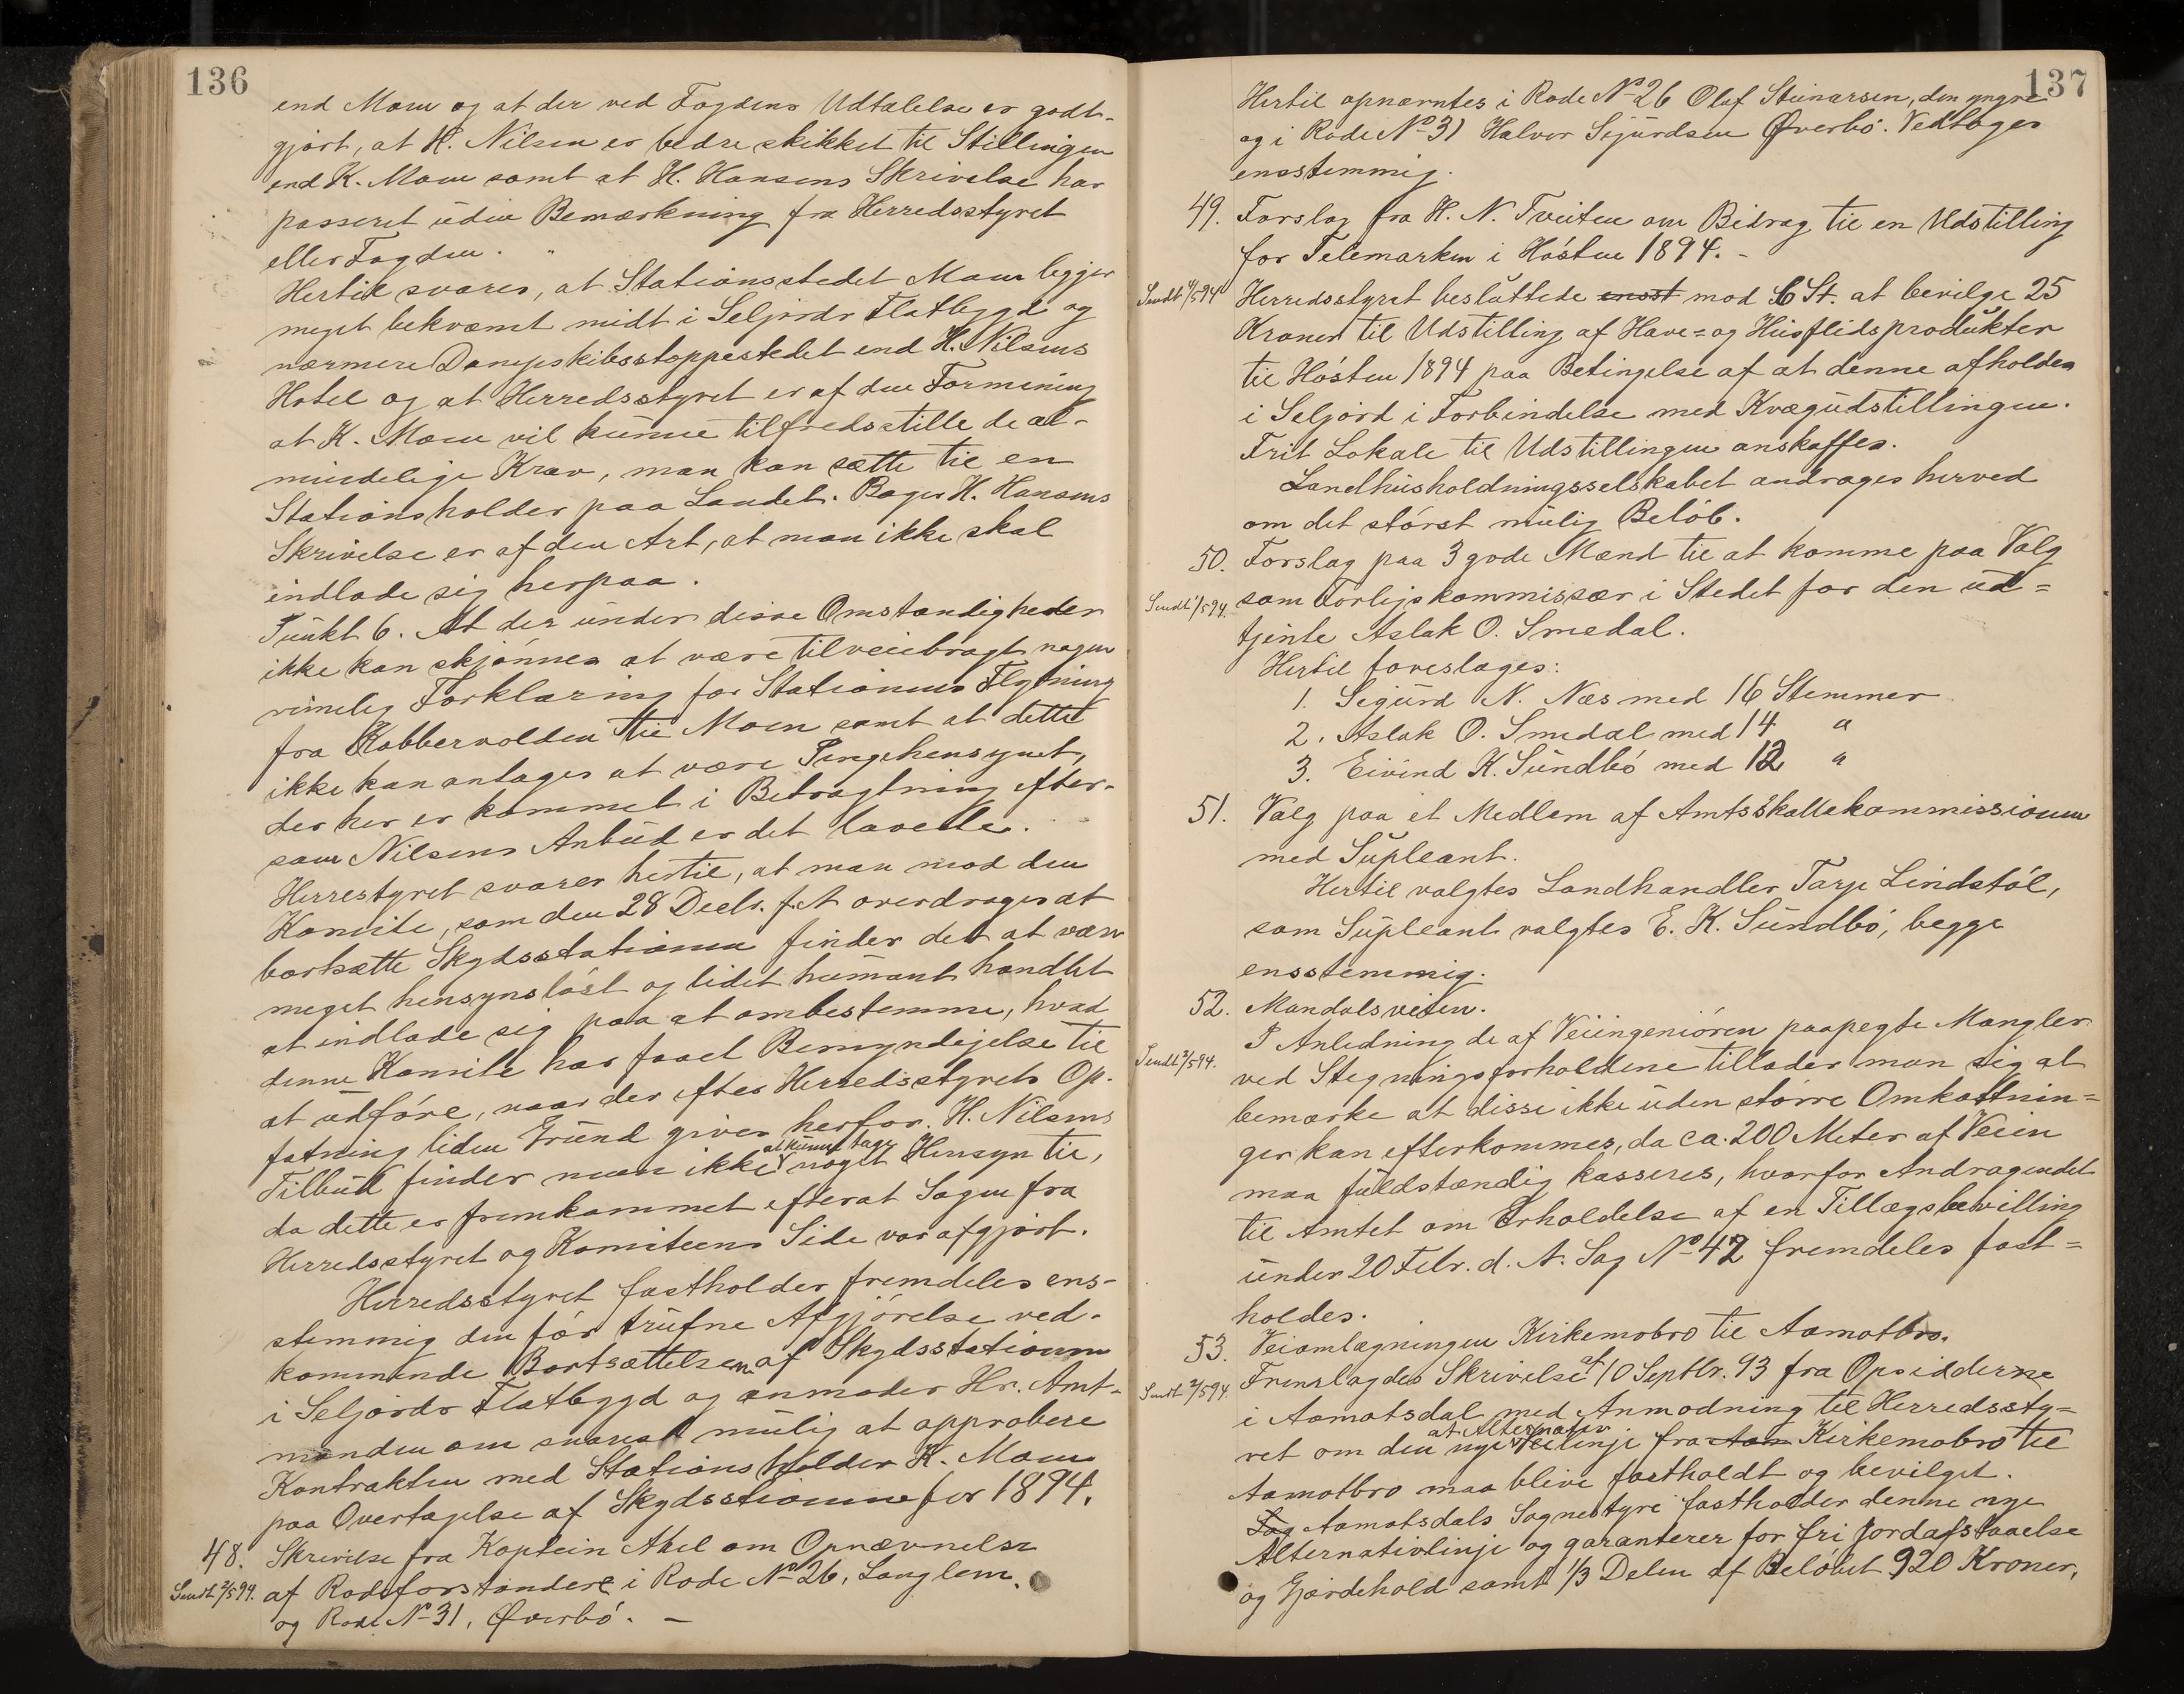 136
end Moen og at der ved Fogdens Udtalelse er godt-
gjort, at H. Nilsen er bedre skikket til Stillingen
end K. Moen samt at H. Hansens Skrivelse har
passeret uden Bemærkning fra Herredsstyret
eller Fogden.
Hertil svares, at Stationsstedet Moen ligger
meget bekvæmt midt i Seljords Flatbygd og
nærmere Dampskibsstoppestedet end H. Nilsens
Hotel og at Herredsstyret er af den Formening
at K. Moen vil kunne tilfredsstille de al-
mindelige Krav, man kan sætte til en
Stationsholder paa Landet. Bager H. Hansens
Skrivelse er af den Art, at man ikke skal
indlade sig herpaa.
Punkt 6. At der under disse Omstændigheder
ikke kan skjønnes at være tilveiebragt nogen
rimelig Forklaring for Stationens Flytning
fra Kobbervolden til Moen samt at dette
ikke kan antages at være Pengehensynet,
der her er kommet i Betragtning efter-
som Nilsens Anbud er det laveste.
Herrestyret svarer hertil, at man mod den
Komite, som den 28 Decbr. f. A overdroges at
bortsætte Skydsstationen finder det at være
meget hensynsløst og lidet humant handlet
at indlade sig paa at ombestemme, hvad
denne Komite har faaet Bemyndigelse til
at udføre, naar der efter Herredsstyrets Op-
fatning liden Grund gives herfor. H. Nilsens
Tilbud finder man ikke at kunne tage noget Hensyn til,
da dette er fremkommet efterat Sagen fra
Herredsstyret og Komiteens Side var afgjort.
Herredsstyret fastholder fremdeles ens-
stemmig den før trufne Afgjørelse ved-
kommende Bortsættelsen af Skydsstationen
i Seljords Flatbygd og anmoder Hr. Amt-
manden om snarest mulig at approbere
Kontrakten med Stationsholder K. Moen
paa Overtagelse af Skydsstionene for 1894.
48. Skrivelse fra Kaptein Abel om Opnævnelse
Sendt 2/5 94. af Rodeforstandere i Rode No 26, Langlem,
og Rode No 31, Øverbó. —
137
Hertil opnævntes i Rode No 26 Olaf Steinarsen, den yngre
og i Rode No 31 Halvor Sigurdsen Øverbó. Vedtoges
ensstemmig.
49. Forslag fra H. N. Tveiten om Bidrag til en Udstilling
for Telemarken i Hósten 1894. -
Sendt 4/5 94 Herredsstyret besluttede ensst mod 6 St. at bevilge 25
Kroner til Udstilling af Have= og Husflidsprodukter
til Hósten 1894 paa Betingelse af at denne afholdes
i Seljord i Forbindelse med Kvægudstillingen.
Frit Lokale til Udstillingen anskaffes.
Landhusholdningsselskabet andrages herved
om det stórst mulig Belób.
50. Forslag paa 3 gode Mænd til at komme paa Valg
Sendt 1/5 94. som Forligskommissær i Stedet for den ud=
tjente Aslak O. Smedal.
Hertil foreslages:
1. Sigurd N. Næs med 16 Stemmer
2. Aslak O. Smedal med 14 "
3. Eivind K. Sundbó med 12 "
51. Valg paa et Medlem af Amtsskattekommissionen
med Supleant.
Hertil valgtes Landhandler Tarje Lindstól,
som Supleant valgtes E. K. Sundbó, begge
ensstemmig.
52. Mandalsveien.
I Anledning de af Veiingeniören paapegte Mangler
Sendt 2/5 94. ved Stegningsforholdene tillader man sig at
bemærke at disse ikke uden stórre Omkostnin=
ger kan efterkommes, da ca. 200 Meter af Veien
maa fuldstændig kasseres, hvorfor Andragendet
til Amtet om Erholdelse af en Tillægsbevilling
under 20 Febr. d. A. Sag No 42 fremdeles fast=
holdes.
53. Veiomlægningen Kirkemobro til Aamotbro.
Sendt 2/5 94. Fremlagdes Skrivelse af 10 Septbr. 93 fra Opsidderne
i Aamotsdal med Anmodning til Herredssty=
ret om den nye at Alternativ Veilinje fra Aam Kirkemobro til
Aamotbro maa blive fastholdt og bevilget.
Sag Aamotsdals Sognestyre fastholder denne nye
Alternativlinje og garanterer for fri Jordafstaaelse
og Gjærdehold samt 1/3 Delen af Belóbet 920 Kroner,